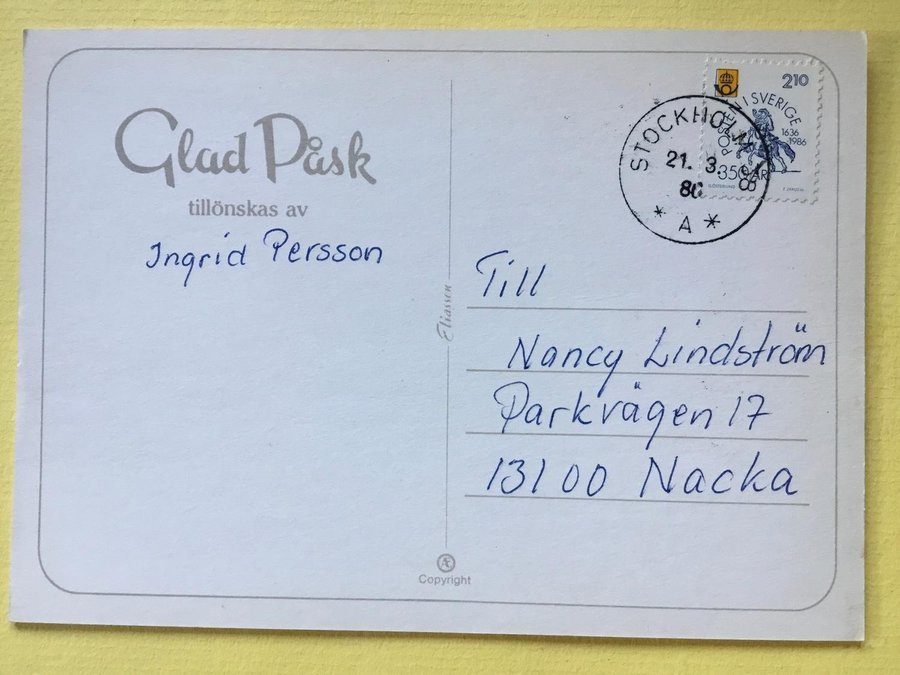 Glad Påsk
tillönskas av
Ingrid Persson
Eliasson
Copyright
210
I SVERIGE
1636
1986
350 ÅR
STOCKHOLM
21. 3.
86
* A *
Till
Nancy Lindström
Parkvägen 17
131 00 Nacka